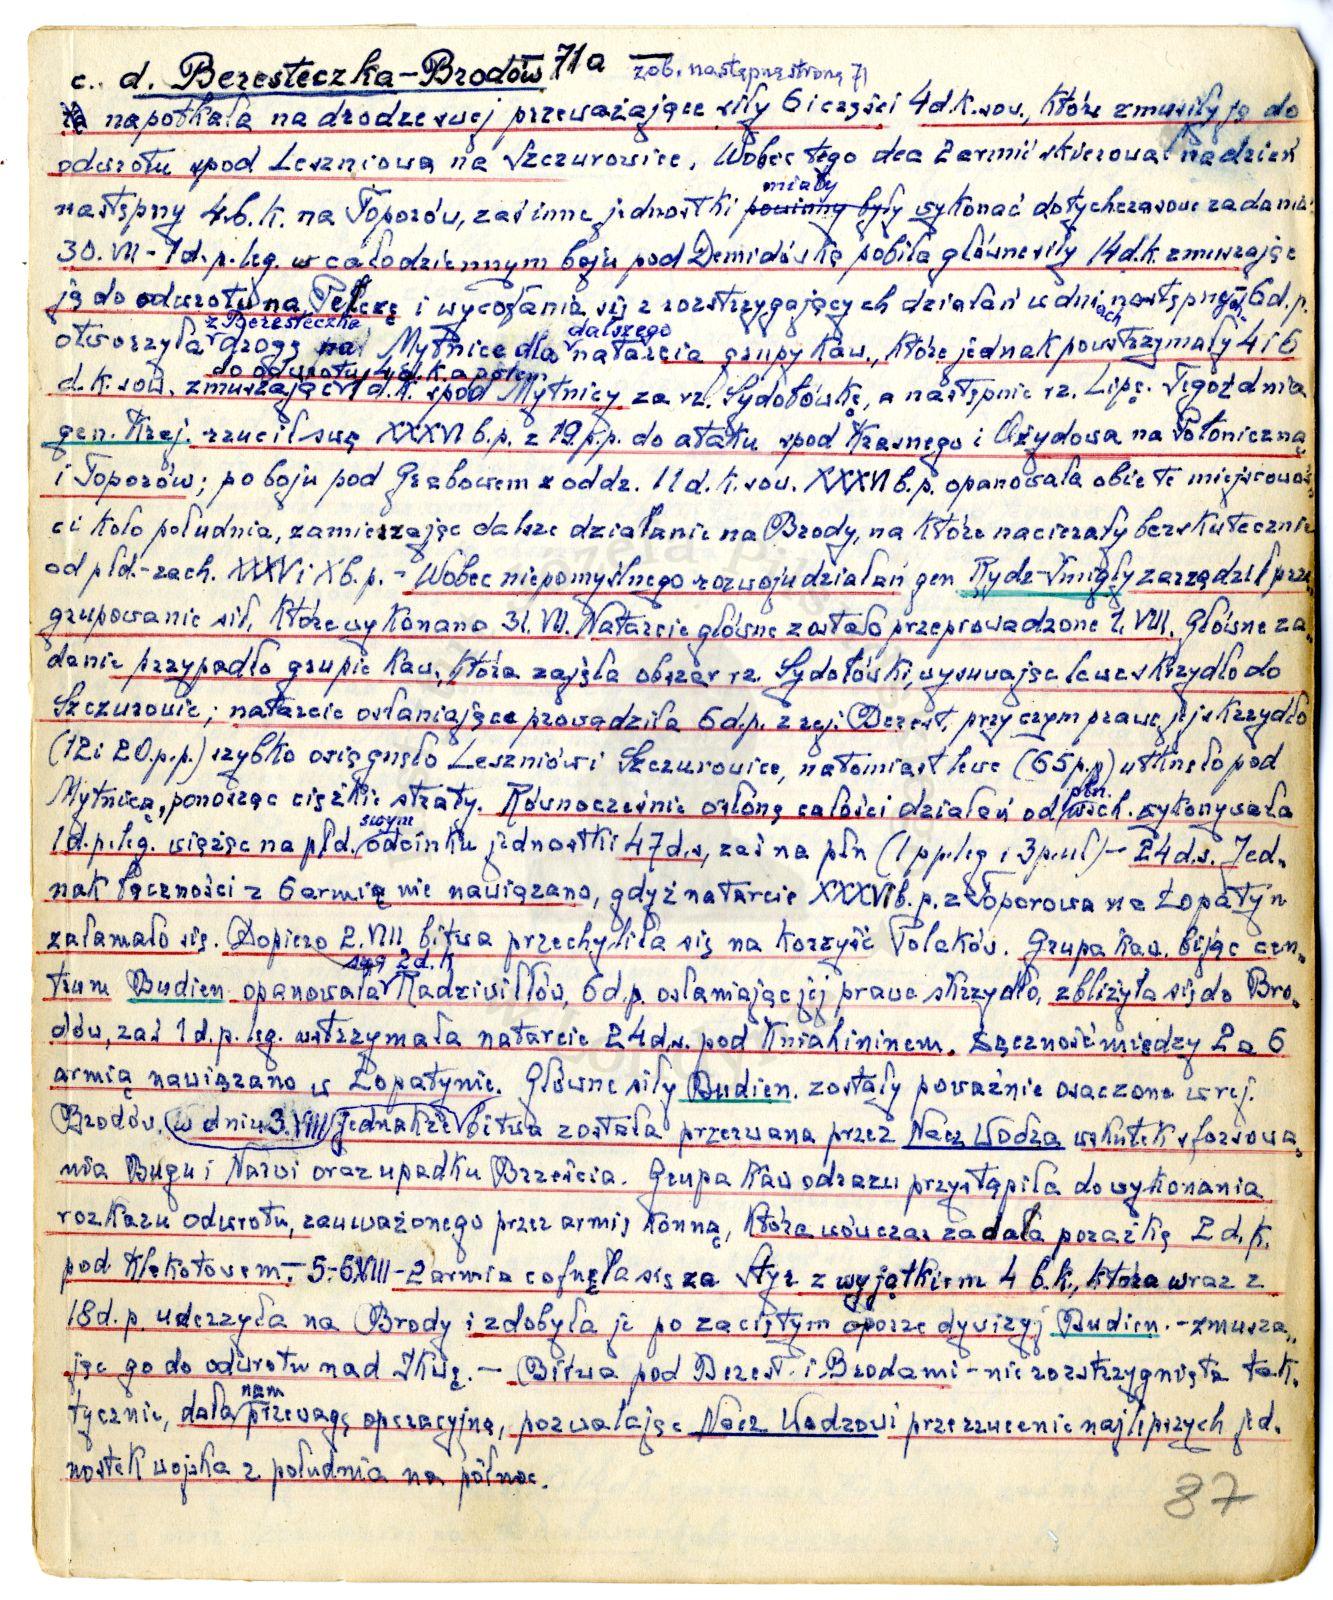 c. d. Beresteczka-Brodów 71a — zob. następną stronę 71
ra napotkała na drodze swej przeważające siły 6 i części 4 d.k. sow., które zmusiły ją do
odwrotu spod Leszniowa na Szczurowice. Wobec tego dca 2 armii skierował na dzień
miały
następny 4. b. k. na Toporów, zaś inne jednostki powinny były wykonać dotychczasowe zadania.
30. VII - 1 d. p. leg. w całodziennym boju pod Demidówką pobiła główne siły 14 d.k. zmuszając
ją do odwrotu na Telczę i wycofania się z rozstrzygających działań w dniach następnych. 6 d. p.
z Beresteczka dalszego
otworzyła drogę na Mytnicę dla natarcia grupy kaw., które jednak powstrzymały 4 i 6
do odwrotu 4 b. k. a potem
d. k. sow. zmuszając 1 d.k. spod Mytnicy za rz. Sydołówkę, a następnie rz. Lipę. Tegoż dnia
gen. Kraj. rzucił swą XXXVI b. p. z 19 p. p. do ataku spod Krasnego i Ożydowa na Połoniczną
i Toporów; po boju pod Grabowem z oddz. 11 d. k. sow. XXXVI b. p. opanowała obie te miejscowoś-
ci koło południa, zamierzając dalsze działanie na Brody, na które nacierały bezskutecznie
od płd.-zach. XXXV i X b. p. - Wobec niepomyślnego rozwoju działań gen. Rydz-Śmigły zarządził prze-
grupowanie sił, które wykonano 31. VII. Natarcie główne zostało przeprowadzone 1. VIII. Główne za-
danie przypadło grupie kaw., która zajęła obszar rz. Sydołówki, wysuwając lewe skrzydło do
Szczurowic; natarcie osłaniające prowadziła 6 d.p. z rej. Berest. przy czym prawe jej skrzydło
(12 i 20. p. p.) szybko osiągnęło Leszniów i Szczurowice, natomiast lewe (65 p.p.) utknęło pod
płn.
Mytnicą, ponosząc ciężkie straty. Równocześnie osłonę całości działań od wsch. wykonywała
swym
1 d. p. leg. wiążąc na płd. odcinku jednostki 47 d.s., zaś na płn (1 pp. leg i 3 p. uł) - 24 d.s. Jed-
nak łączności z 6 armią nie nawiązano, gdyż natarcie XXXVI b. p. z Toporowa na Łopatyn
załamało się. Dopiero 2. VIII bitwa przechyliła się na korzyść Polaków. Grupa kaw. bijąc cen-
swą 2 d. k
trum Budien. opanowała Radziwiłłów, 6 d.p. osłaniając jej prawe skrzydło, zbliżyła się do Bro-
dów, zaś 1 d. p. leg. wstrzymała natarcie 24 d.s. pod Kniahininem. Łączność między 2 a 6
armią nawiązano w Łopatynie. Główne siły Budien. zostały poważnie osaczone w rej.
Brodów. w dniu 3. VIII jednakże bitwa została przerwana przez Nacz Wodza wskutek sforsowa-
nia Bugu i Narwi oraz upadku Brześcia. Grupa kaw od razu przystąpiła do wykonania
rozkazu odwrotu, zauważonego przez armię konną, która wówczas zadała porażkę 2 d. k.
pod Klekotowem. - 5-6. VIII - 2 armia cofnęła się za Styr z wyjątkiem 4 b. k., która wraz z
18 d. p. uderzyła na Brody i zdobyła je po zaciętym oporze dywizyj Budien. - zmusza-
jąc go do odwrotu nad Ikwę. - Bitwa pod Berest. i Brodami - nie rozstrzygnięta tak-
nam
tycznie, dała przewagę operacyjną, pozwalając Nacz Wodzowi przerzucenie najlepszych jed-
nostek wojska z południa na północ.
87